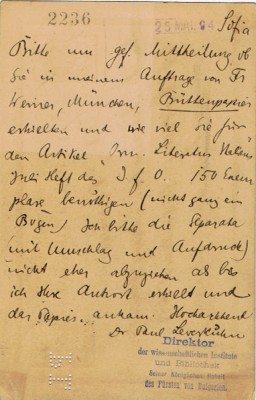 2236
25 MAI 94
Sofia
Bitte um gef. Mittheilung, ob
Sie in meinem Auftrage von Fr
Werner, München, Büttenpapier
erhielten und wie viel Sie für
den Artikel „Orn. Literatur
Juli Heft des J. f. O. 150 Exem
plare benöthigen (nicht ganz ein
Bogen) Ich bitte die Separata
(mit Umschlag und Aufdruck)
nicht eher abzuziehen als bis
ich Ihre Antwort erhielt und
das Papier ankam. Hochachtend
Dr Paul Leverkühn
Direktor
der wissenschaftlichen Institute
und Bibliothek
Seiner Königlichen Hoheit
des Fürsten von Bulgarien.